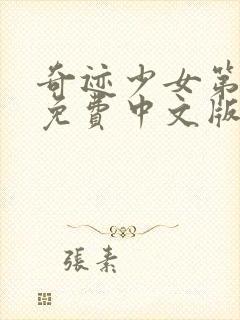 奇迹少女第
免費中文版
張素